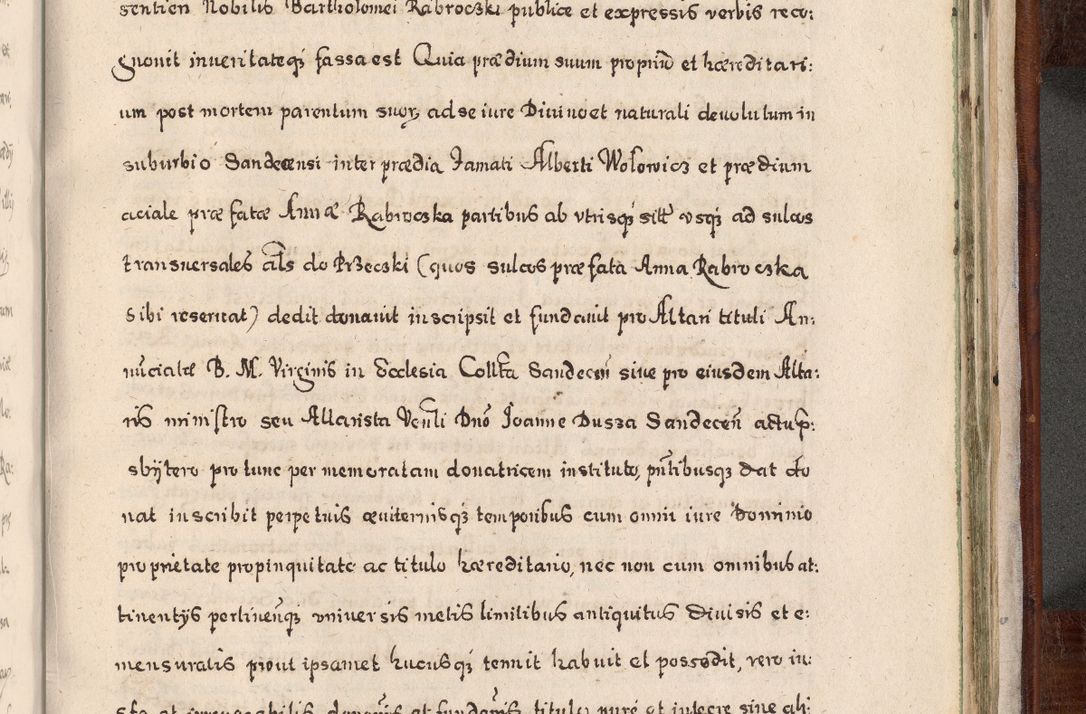 sentien Nobilis Bartholomei Rabroczki publice et expressis verbis reco:
gnouit inueritateqз fassa est Quia prædium suum propriū et hæreditari:
um post mortem parentum suoꝝ ad se iure Diuino et naturali deuolutum in
suburbio Sandecensi inter prædia Famati Alberti Wolowicz et prædium
aciale præfatæ Annæ Rabroczka partibus ab vtrisqз sitt vsqз ad sulcos
transuersales als do Rzeczki (quos sulcos præfata Anna Rabroczka
sibi reseruat) dedit donauit inscripsit et fundauit pro Altari tituli An:
nūciatæ B. M. Virginis in Ecclesia Collta Sandecen siue pro eiusdem Alta:
ris ministro seu Altarista Venli Dno Joanne Dusza Sandecen actu p:
sbÿtero pro tunc per memoratam donatricem instituto, pntibusqз dat do
nat inscribit perpetuis æuiternisqз temporibus cum omni iure Dominio
proprietate propinquitate ac titulo hæreditario, nec non cum omnibus at:
tinentÿs pertinenqз vniuersis metis limitibus antiquitus diuisis et e:
mensuratis prout ipsamet hucusqз tenuit habuit et possedit, vero iu:
sto et irreuocabilis donanis et fundanis titulo puré et integre sine ali: